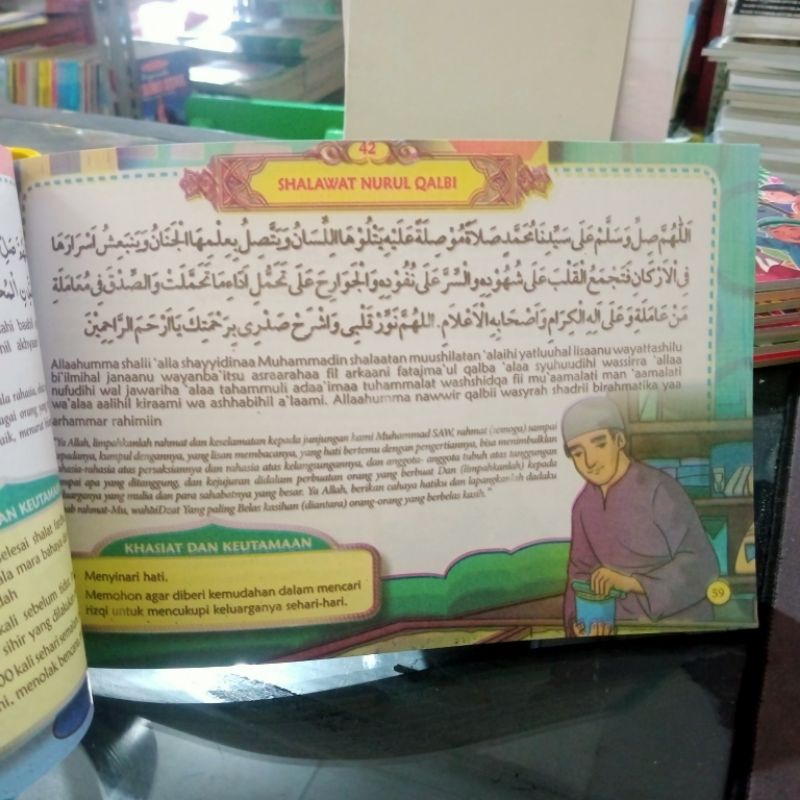 42
SHALAWAT NURUL QALBI
اَللّٰهُمَّ صَلِّ وَسَلِّمْ عَلَى سَيِّدِنَا مُحَمَّدٍ صَلَاةً مُوْصِلَةً عَلَيْهِ يَتْلُوْهَا اللِّسَانُ وَيَتَّصِلُ بِعِلْمِهَا الْجَنَانُ وَيَنْبَعِثُ اَسْرَارُهَا
فِى الْاَرْكَانِ فَتَجْمَعُ الْقَلْبَ عَلَى شُهُوْدِهِ وَالسِّرَّ عَلَى نُفُوْدِهِ وَالْجَوَارِحَ عَلَى تَحَمُّلِ اَدَاءِ مَا تَحَمَّلَتْ وَالصِّدْقَ فِى مُعَامَلَةِ
مَنْ عَامَلَهُ وَعَلَى اٰلِهِ الْكِرَامِ وَاَصْحَابِهِ الْاَعْلَامِ. اللهُمَّ نَوِّرْ قَلْبِى وَاشْرَحْ صَدْرِى بِرَحْمَتِكَ يَا اَرْحَمَ الرَّاحِمِيْنَ
Allaahumma shalii 'alla shayyidinaa Muhammadin shalaatan muushilatan 'alaihi yatluuhal lisaanu wayattashilu
bi'ilmihal janaanu wayanba'itsu asraarahaa fil arkaani fatajma'ul qalba 'alaa syuhuudihi wassirra 'allaa
nufudihi wal jawariha 'alaa tahammuli adaa'imaa tuhammalat washshidqa fii mu'aamalati man 'aamalati
wa'alaa aalihil kiraami wa ashhabihil a'laami. Allaahumma nawwir qalbii wasyrah shadrii birahmatika yaa
arhammar rahimiin
"Ya Allah, limpahkanlah rahmat dan keselamatan kepada junjungan kami Muhammad SAW, rahmat (semoga) sampai
kepadanya, kumpul dengannya, yang lisan membacanya, yang hati bertemu dengan pengertiannya, bisa menimbulkan
rahasia-rahasia atas persaksiannya dan rahasia atas kelangsungannya, dan anggota- anggota tubuh atas tanggungan
apa yang ditanggung, dan kejujuran didalam perbuatan orang yang berbuat Dan (limpahkanlah) kepada
keluarganya yang mulia dan para sahabatnya yang besar. Ya Allah, berikan cahaya hatiku dan lapangkanlah dadaku
rahmat-Mu, wahai Dzat Yang paling Belas kasihan (diantara) orang-orang yang berbelas kasih."
KHASIAT DAN KEUTAMAAN
Menyinari hati.
Memohon agar diberi kemudahan dalam mencari
rizqi untuk mencukupi keluarganya sehari-hari.
59
AN KEUTAMAAN
elesai shalat
ala mara bahaya
lah
kali sebelum
sihir yang
00 kali sehari semalam
ni, menolak